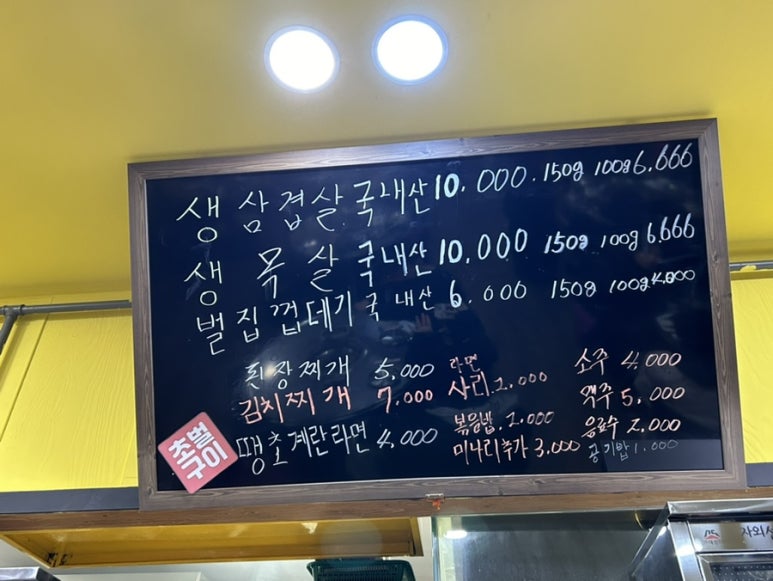 생 삼겹살 국내산 10.000. 150g 100g 6.666
생 목살 국내산 10,000 150g 100g 6.666
벌집껍데기 국내산 6.000 150g 100g 4.000
된장찌개 5,000
김치찌개 7,000
땡초계란라면 4,000
라면
사리 2,000
볶음밥 2,000
미나리추가 3,000
소주 4,000
맥주 5,000
음료수 2,000
공기밥 1.000
초벌
구이